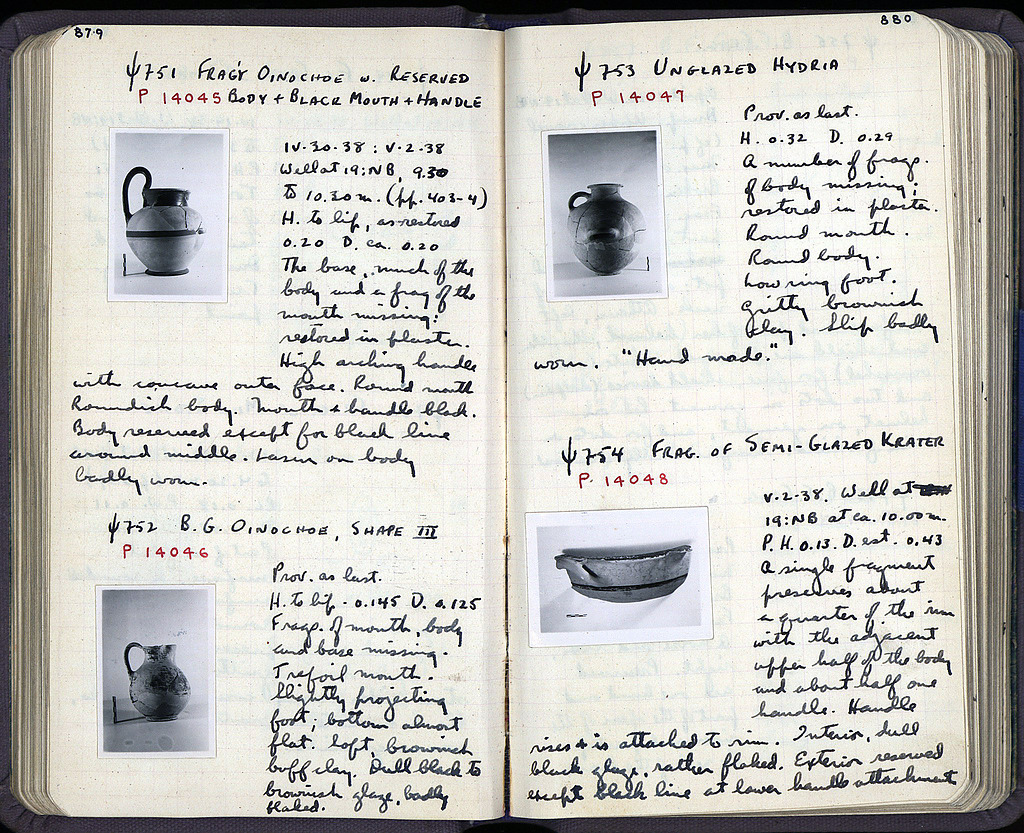 879
ψ751 FRAG'Y OINOCHOE W. RESERVED
P 14045 BODY + BLACK MOUTH + HANDLE
IV-30-38 : V-2-38
Well at 19:NB, 9.30
to 10.30 m. (pp. 403-4)
H. to lip, as restored
0.20 D. ca. 0.20
The base, much of the
body and a frag of the
mouth missing:
restored in plaster.
High arching handle
with concave outer face. Round mouth
Roundish body. Mouth + handle black.
Body reserved except for black line
around middle. on body
badly worn.
ψ752 B.G. OINOCHOE, SHAPE III
P 14046
Prov. as last.
H. to lip - 0.145 D. 0.125
Frags. of mouth, body
and base missing.
Trefoil mouth.
Slightly projecting
foot; bottom almost
flat. Soft, brownish
buff clay. Dull black to
brownish glaze, badly
flaked.
880
ψ753 UNGLAZED HYDRIA
P 14047
Prov. as last.
H. 0.32 D. 0.29
A number of frags.
of body missing;
restored in plaster.
Round mouth.
Round body.
Low ring foot.
Gritty brownish
clay. Slip badly
worn. "Hand made."
ψ754 FRAG. OF SEMI-GLAZED KRATER
P. 14048
V-2-38. Well at
19:NB at ca. 10.00 m.
P.H. 0.13. D. est. 0.43
A single fragment
preserves about
a quarter of the rim
with the adjacent
upper half of the body
and about half one
handle. Handle
rises + is attached to rim. Interior, dull
black glaze, rather flaked. Exterior reserved
except black line at lower handle attachment